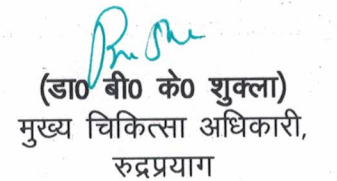 (डा0 बी0 के0 शुक्ला)
मुख्य चिकित्सा अधिकारी,
रुद्रप्रयाग